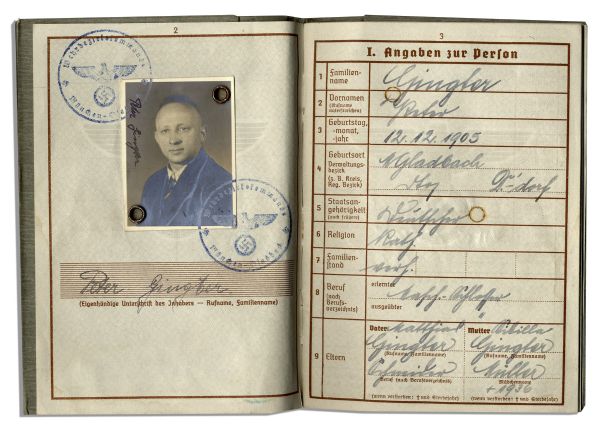 2
Wehrbezirkskommando
München-Gladbach
Peter Gingter
Wehrbezirkskommando
München-Gladbach
Peter Gingter
(Eigenhändige Unterschrift des Inhabers — Rufname, Familienname)
3
I. Angaben zur Person
1 Familien-
name
Gingter
2 Vornamen
(Rufname
unterstreichen)
Peter
3 Geburtstag,
-monat,
-jahr
12.12.1905
4 Geburtsort
Verwaltungs-
bezirk
(z. B. Kreis,
Reg. Bezirk)
M Gladbach
D'dorf
5 Staatsan-
gehörigkeit
(auch frühere)
6 Religion
Kath.
7 Familien-
stand
verh.
8 Beruf
(nach
Berufs-
verzeichnis)
erlernter
Masch.-Schlosser
ausgeübter
9 Eltern
Vater Matthias
Gingter
(Rufname, Familienname)
Schneider
Beruf (nach Berufsverzeichnis)
(wenn verstorben: † und Sterbejahr)
Mutter Sibilla
Gingter
(Rufname, Familienname)
Müller
Mädchenname
† 1936
(wenn verstorben: † und Sterbejahr)